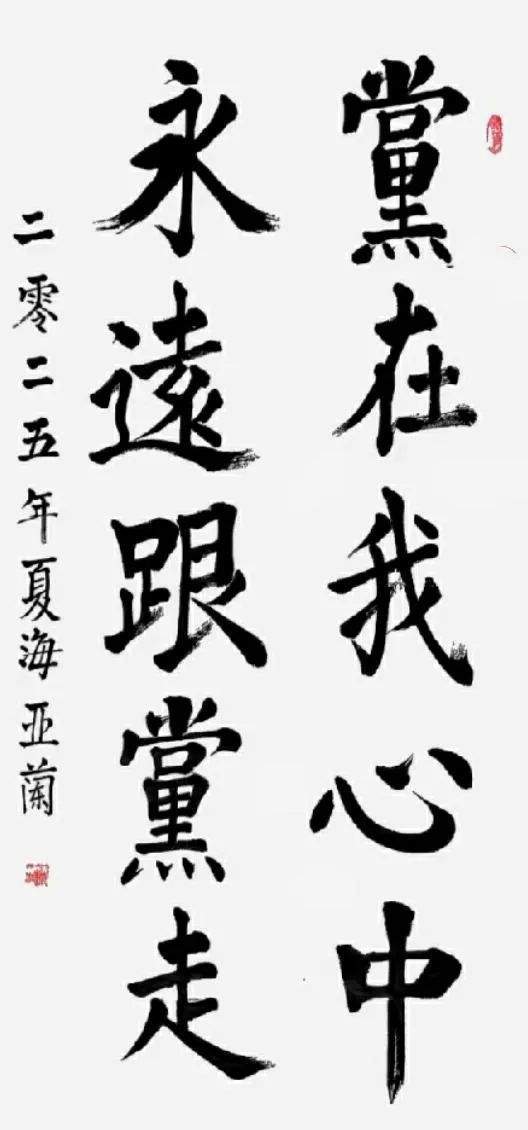 黨在我心中
永遠跟黨走
二零二五年夏海亚蘭